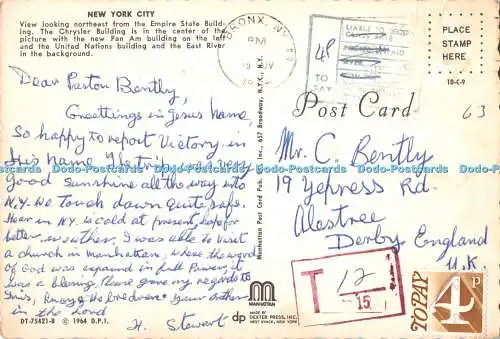 NEW YORK CITY
View looking northeast from the Empire State Build-
ing. The Chrysler Building is in the center of the
picture with the new Pan Am building on the left
and the United Nations building and the East River
in the background.
BRONX, NY
PM
LIABLE TO
48
TO
PAY
PLACE
STAMP
HERE
18-C-9
63
Post Card
Dear Pastor Bently,
Greetings in Jesus name,
So happy to report Victory in
His name the trip was very
good sunshine all the way into
N.Y. We touch down quite safe.
Hear in N.Y. is cold at present, hope for
better weather. I was able to visit
a church in manhattan, where the word
of God was expound in full Power, it
was a blessing. Please give my regards to
the brethren Your brother
in the Lord
H. Stewart
Mr. C. Bently
19 Yepress Rd.
Alestree
Derby England
U.K.
Manhattan Post Card Pub. Inc., 657 Broadway, N.Y.C., N.Y.
Dodo-Postcards Dodo-Postcards Dodo-Postcards Dodo-Postcards
T 12
15
TO PAY
4p
MANHATTAN
dp
MADE BY
DEXTER PRESS, INC.
WEST NYACK, NEW YORK
DT-75421-B © 1964 D.P.I.